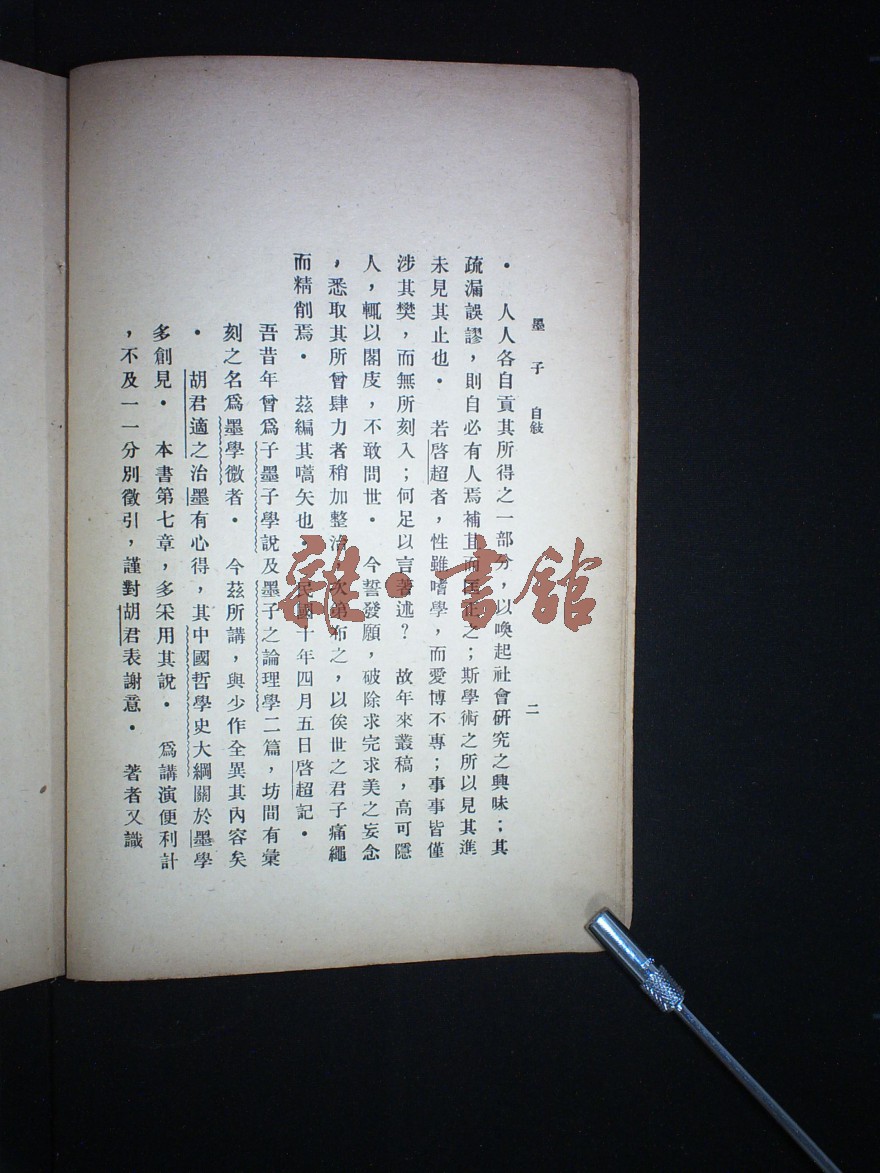 墨子 自敍 二
． 人人各自貢其所得之一部分，以喚起社會研究之興味；其
疏漏誤謬，則自必有人焉補苴而匡正之；斯學術之所以見其進
未見其止也． 若啓超者，性雖嗜學，而愛博不專；事事皆僅
涉其樊，而無所刻入；何足以言著述？ 故年來叢稿，高可隱
人，輒以閣庋，不敢問世． 今誓發願，破除求完求美之妄念
，悉取其所曾肆力者稍加整治，次第布之，以俟世之君子痛繩
而精削焉． 茲編其嚆矢也． 民國十年四月五日啓超記．
吾昔年曾爲子墨子學說及墨子之論理學二篇，坊間有彙
刻之名爲墨學微者． 今茲所講，與少作全異其內容矣
． 胡君適之治墨有心得，其中國哲學史大綱關於墨學
多創見． 本書第七章，多采用其說． 爲講演便利計
，不及一一分別徵引，謹對胡君表謝意． 著者又識
雜·書館